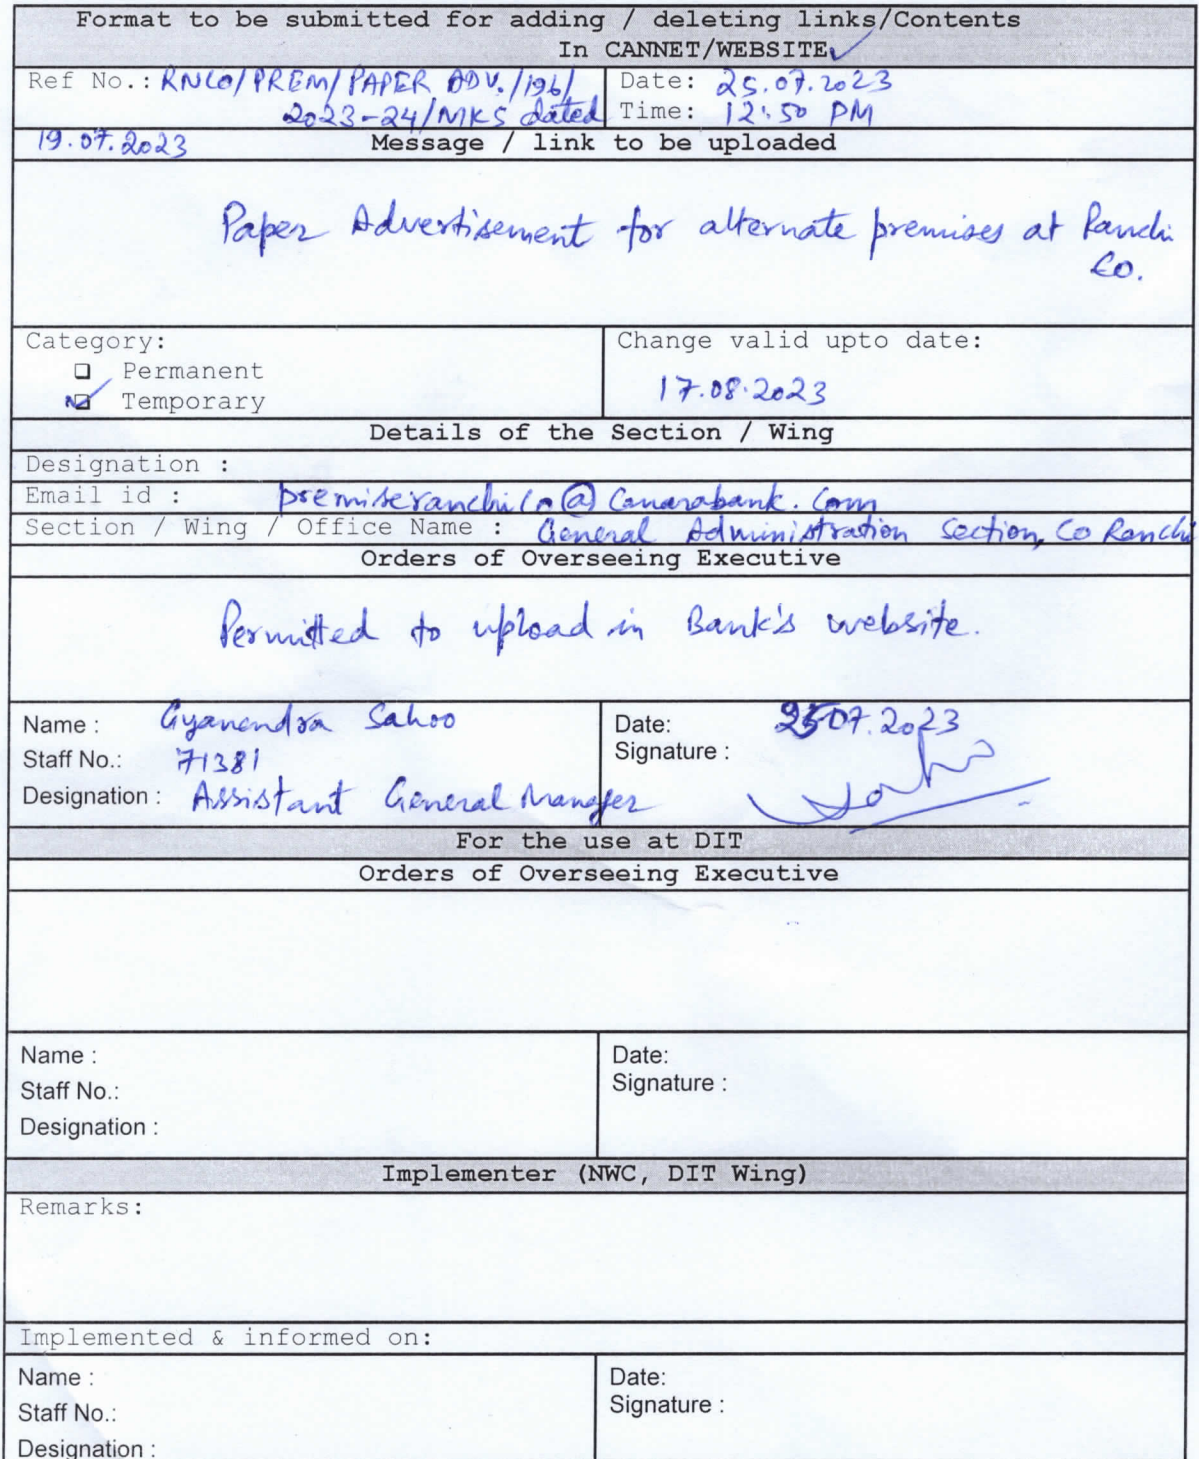 Format to be submitted for adding / deleting links/Contents
In CANNET/WEBSITE ✓
Ref No.: RNCO/PREM/PAPER ADV./196/
2023-24/MKS dated
19.07.2023
Date: 25.07.2023
Time: 12:50 PM
Message / link to be uploaded
Paper Advertisement for alternate premises at Ranchi
CO.
Category:
☐ Permanent
☑ Temporary
Change valid upto date:
17.08.2023
Details of the Section / Wing
Designation :
Email id : premiseranchico@canarabank.com
Section / Wing / Office Name : General Administration Section, Co Ranchi
Orders of Overseeing Executive
Permitted to upload in Bank's website.
Name : Gyanendra Sahoo
Staff No.: 71381
Designation : Assistant General Manager
Date: 25.07.2023
Signature :
For the use at DIT
Orders of Overseeing Executive
Name :
Staff No.:
Designation :
Date:
Signature :
Implementer (NWC, DIT Wing)
Remarks:
Implemented & informed on:
Name :
Staff No.:
Designation :
Date:
Signature :